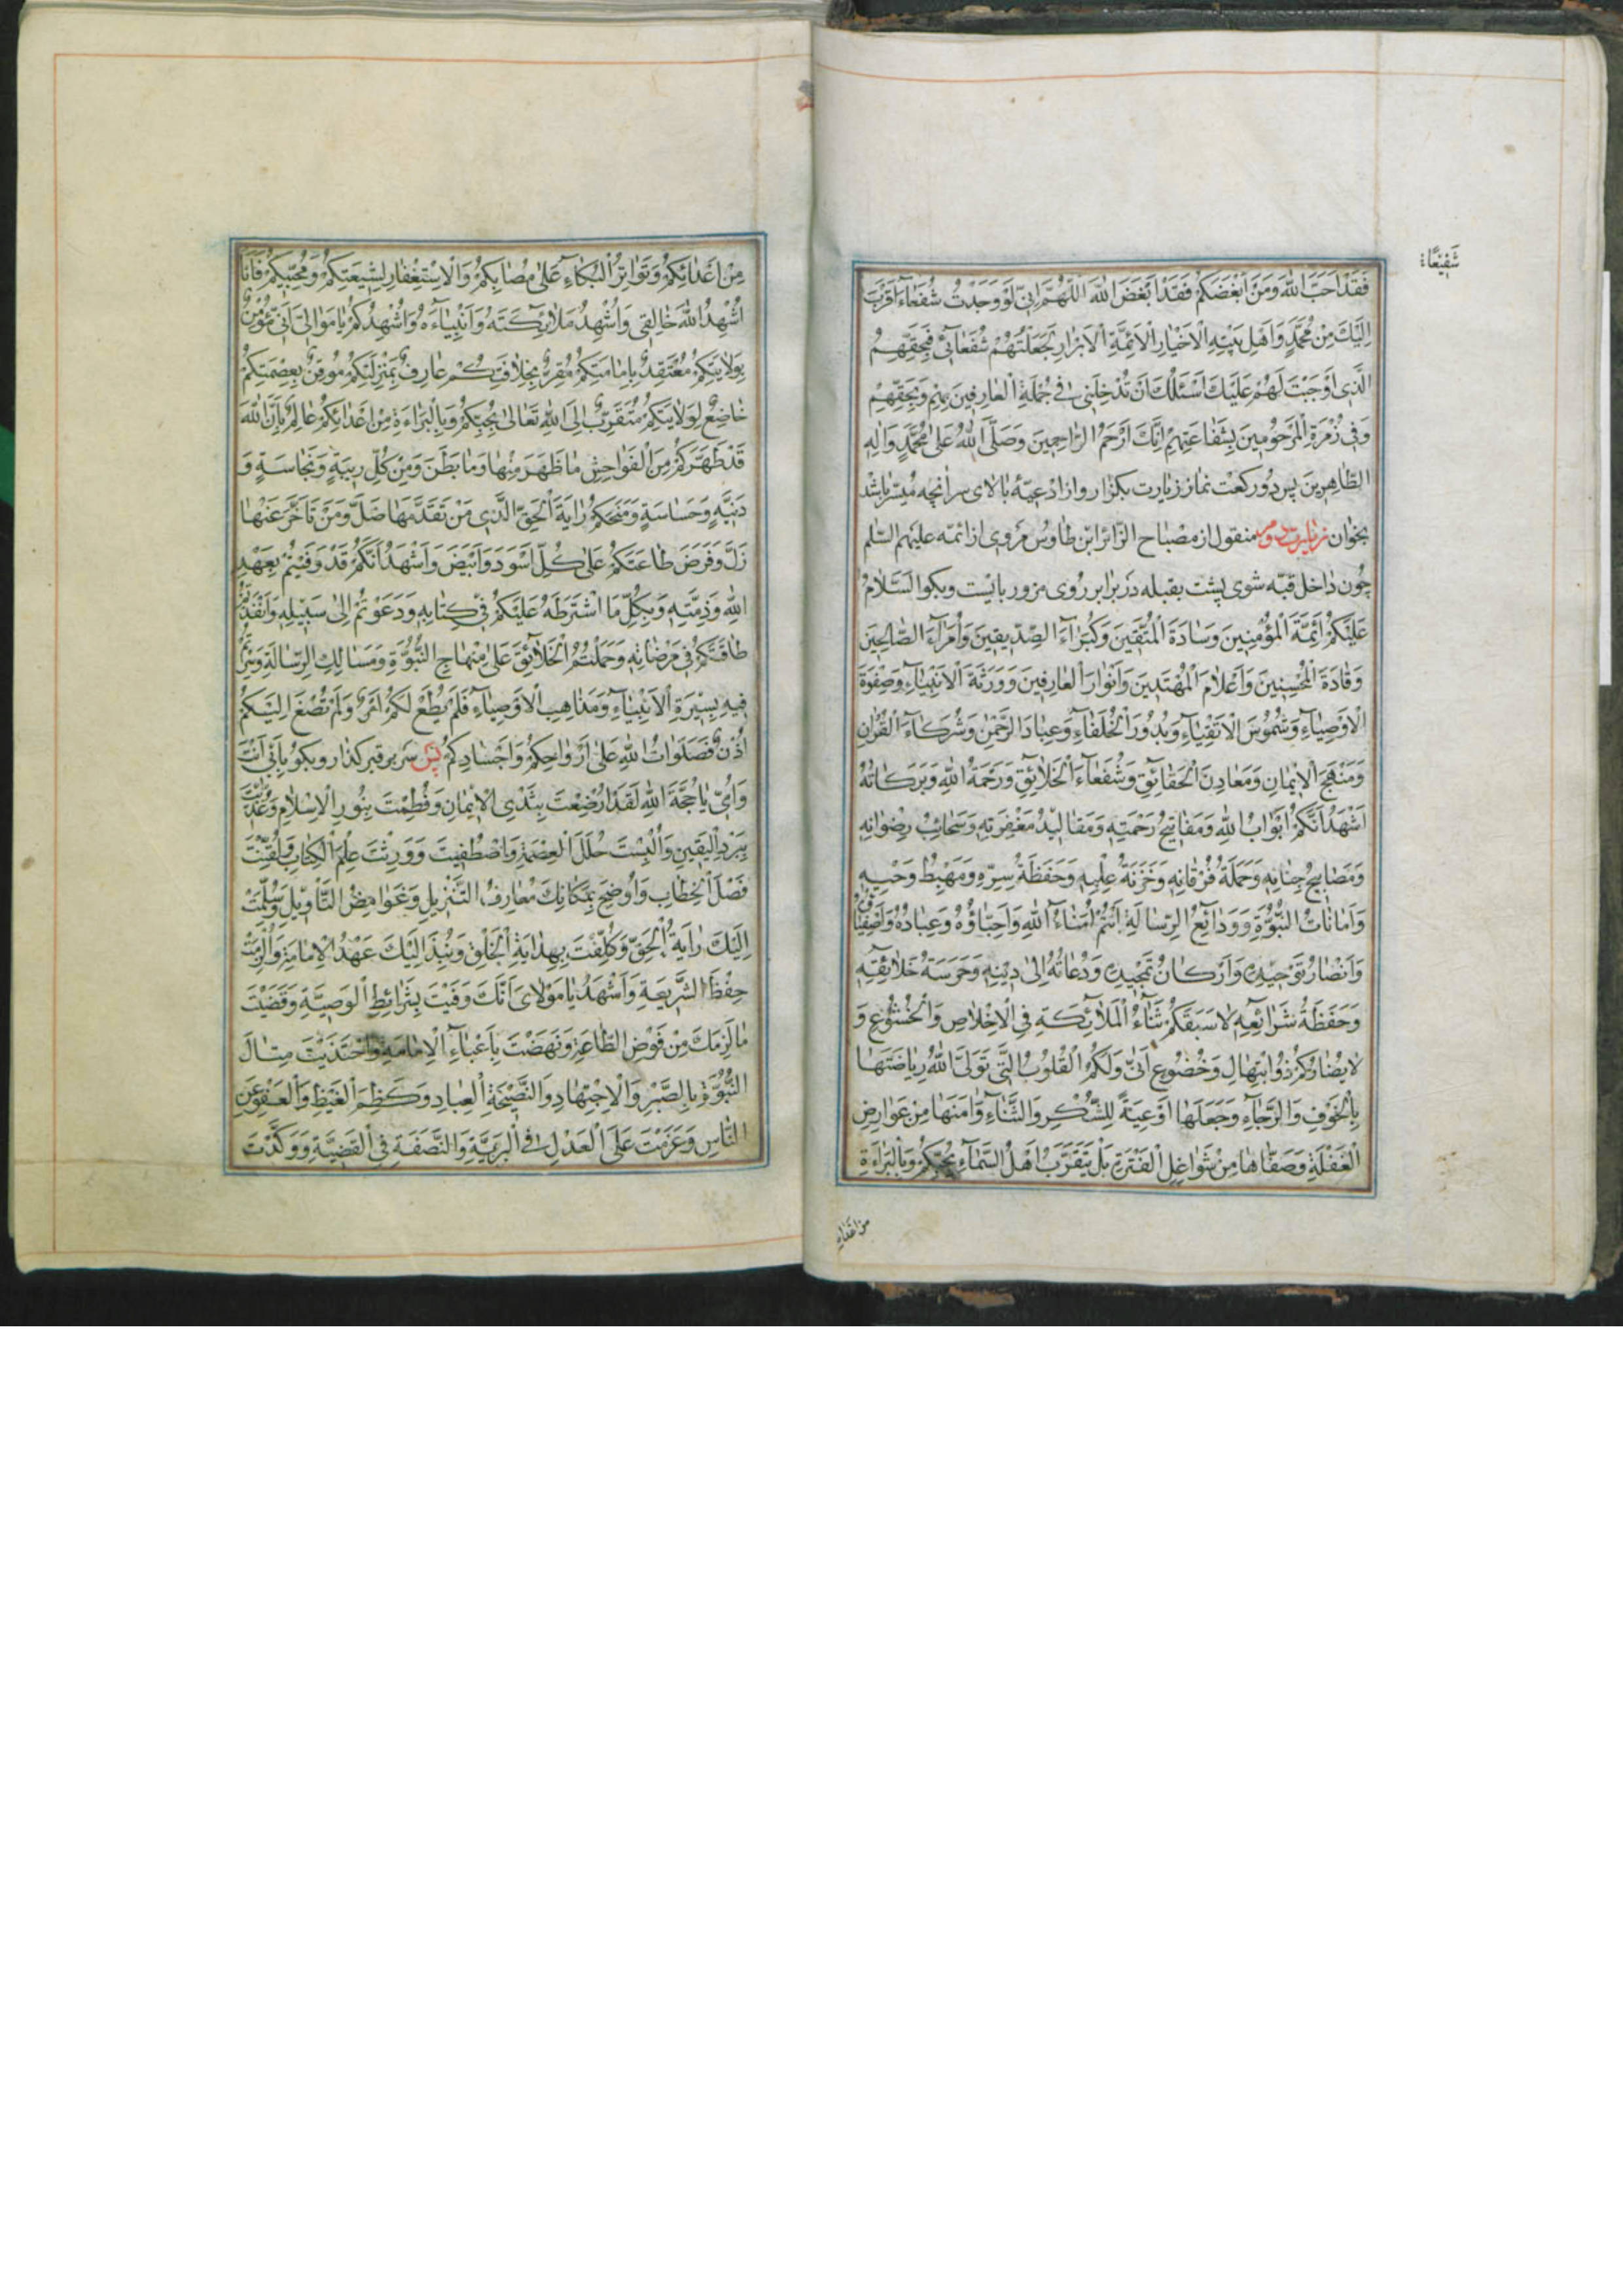 شَفِيعًا
فَقَدْ اَحَبَّ اللّٰهَ وَمَنْ اَبْغَضَكُمْ فَقَدْ اَبْغَضَ اللّٰهَ اَللّٰهُمَّ اِنّى لَوْ وَجَدْتُ شُفَعٰاءَ اَقْرَبَ
اِلَيْكَ مِنْ مُحَمَّدٍ وَاَهْلِ بَيْتِهِ الْاَخْيٰارِ الْاَئِمَّةِ الْاَبْرٰارِ لَجَعَلْتُهُمْ شُفَعٰائى فَبِحَقِّهِمُ
الَّذى اَوْجَبْتَ لَهُمْ عَلَيْكَ اَسْئَلُكَ اَنْ تُدْخِلَنى فى جُمْلَةِ الْعٰارِفينَ بِهِمْ وَبِحَقِّهِمْ
وَفى زُمْرَةِ الْمَرْحُومينَ بِشَفٰاعَتِهِمْ اِنَّكَ اَرْحَمُ الرّٰاحِمينَ وَصَلَّى اللّٰهُ عَلىٰ مُحَمَّدٍ وَاٰلِهِ
الطّٰاهِرينَ پس دو ركعت نماز زيارت بكزار واز ادعيهٔ بالاى سر انچه ميسّر باشد
بخوان زيارت دويم منقول از مصباح الزّائر ابن طاوس مروى از ائمّه عليهم السّلم
چون داخل قبّه شوى پشت بقبله در برابر روى مزور بايست وبكو اَلسَّلٰامُ
عَلَيْكُمْ اَئِمَّةَ الْمُؤْمِنينَ وَسٰادَةَ الْمُتَّقينَ وَكُبَرٰاءَ الصِّدّيقينَ وَاُمَرٰاءَ الصّٰالِحينَ
وَقٰادَةَ الْمُحْسِنينَ وَاَعْلٰامَ الْمُهْتَدينَ وَاَنْوٰارَ الْعٰارِفينَ وَوَرَثَةَ الْاَنْبِيٰاءِ وَصَفْوَةَ
الْاَوْصِيٰاءِ وَشُمُوسَ الْاَتْقِيٰاءِ وَبُدُورَ الْخُلَفٰاءِ وَعِبٰادَ الرَّحْمٰنِ وَشُرَكٰاءَ الْقُرْاٰنِ
وَمَنْهَجَ الْايمٰانِ وَمَعٰادِنَ الْحَقٰائِقِ وَشُفَعٰاءَ الْخَلٰائِقِ وَرَحْمَةُ اللّٰهِ وَبَرَكٰاتُهُ
اَشْهَدُ اَنَّكُمْ اَبْوٰابُ اللّٰهِ وَمَفٰاتيحُ رَحْمَتِهِ وَمَقٰاليدُ مَغْفِرَتِهِ وَسَحٰائِبُ رِضْوٰانِهِ
وَمَصٰابيحُ جِنٰانِهِ وَحَمَلَةُ فُرْقٰانِهِ وَخَزَنَةُ عِلْمِهِ وَحَفَظَةُ سِرِّهِ وَمَهْبِطُ وَحْيِهِ
وَاَمٰانٰاتُ النُّبُوَّةِ وَوَدٰائِعُ الرِّسٰالَةِ اَنْتُمْ اُمَنٰاءُ اللّٰهِ وَاَحِبّٰاؤُهُ وَعِبٰادُهُ وَاَصْفِيٰاؤُهُ
وَاَنْصٰارُ تَوْحيدِهِ وَاَرْكٰانُ تَمْجيدِهِ وَدُعٰاتُهُ اِلىٰ دينِهِ وَحَرَسَةُ خَلٰائِقِهِ
وَحَفَظَةُ شَرٰائِعِهِ لٰا سَبَقَكُمْ ثَنٰاءُ الْمَلٰائِكَةِ فِى الْاِخْلٰاصِ وَالْخُشُوعِ وَ
لٰا يُضٰادُّكُمْ ذُو ابْتِهٰالٍ وَخُضُوعٍ اَنّىٰ وَلَكُمُ الْقُلُوبُ الَّتى تَوَلَّى اللّٰهُ رِيٰاضَتَهٰا
بِالْخَوْفِ وَالرَّجٰاءِ وَجَعَلَهٰا اَوْعِيَةً لِلشُّكْرِ وَالثَّنٰاءِ وَاٰمَنَهٰا مِنْ عَوٰارِضِ
الْغَفْلَةِ وَصَفّٰاهٰا مِنْ شَوٰاغِلِ الْفَتْرَةِ بَلْ يَتَقَرَّبُ اَهْلُ السَّمٰاءِ بِحُبِّكُمْ وَبِالْبَرٰاءَةِ
من اعدائ
مِنْ اَعْدٰائِكُمْ وَتَوٰاتُرِ الْبُكٰاءِ عَلىٰ مُصٰابِكُمْ وَالْاِسْتِغْفٰارِ لِشيعَتِكُمْ وَمُحِبّيكُمْ فَاَنَا
اُشْهِدُ اللّٰهَ خٰالِقى وَاُشْهِدُ مَلٰائِكَتَهُ وَاَنْبِيٰاءَهُ وَاُشْهِدُكُمْ يٰا مَوٰالِىَّ اَنّى مُؤْمِنٌ
بِوِلٰايَتِكُمْ مُعْتَقِدٌ بِاِمٰامَتِكُمْ مُقِرٌّ بِخِلٰافَتِكُمْ عٰارِفٌ بِمَنْزِلَتِكُمْ مُوقِنٌ بِعِصْمَتِكُمْ
خٰاضِعٌ لِوِلٰايَتِكُمْ مُتَقَرِّبٌ اِلَى اللّٰهِ تَعٰالىٰ بِحُبِّكُمْ وَبِالْبَرٰاءَةِ مِنْ اَعْدٰائِكُمْ عٰالِمٌ بِاَنَّ اللّٰهَ
قَدْ طَهَّرَكُمْ مِنَ الْفَوٰاحِشِ مٰا ظَهَرَ مِنْهٰا وَمٰا بَطَنَ وَمِنْ كُلِّ ريبَةٍ وَنَجٰاسَةٍ وَ
دَنِيَّةٍ وَخَسٰاسَةٍ وَمَنَحَكُمْ رٰايَةَ الْحَقِّ الَّتى مَنْ تَقَدَّمَهٰا ضَلَّ وَمَنْ تَاَخَّرَ عَنْهٰا
زَلَّ وَفَرَضَ طٰاعَتَكُمْ عَلىٰ كُلِّ اَسْوَدَ وَاَبْيَضَ وَاَشْهَدُ اَنَّكُمْ قَدْ وَفَيْتُمْ بِعَهْدِ
اللّٰهِ وَذِمَّتِهِ وَبِكُلِّ مَا اشْتَرَطَهُ عَلَيْكُمْ فى كِتٰابِهِ وَدَعَوْتُمْ اِلىٰ سَبيلِهِ وَاَنْفَدْتُمْ
طٰاقَتَكُمْ فى مَرْضٰاتِهِ وَحَمَلْتُمُ الْخَلٰائِقَ عَلىٰ مِنْهٰاجِ النُّبُوَّةِ وَمَسٰالِكِ الرِّسٰالَةِ وَسِرْتُمْ
فيهِ بِسيرَةِ الْاَنْبِيٰاءِ وَمَذٰاهِبِ الْاَوْصِيٰاءِ فَلَمْ يُطَعْ لَكُمْ اَمْرٌ وَلَمْ تُصْغَ اِلَيْكُمْ
اُذُنٌ فَصَلَوٰاتُ اللّٰهِ عَلىٰ اَرْوٰاحِكُمْ وَاَجْسٰادِكُمْ پس سر بر قبر كذار وبكو بِاَبى اَنْتَ
وَاُمّى يٰا حُجَّةَ اللّٰهِ لَقَدْ اُرْضِعْتَ بِثَدْىِ الْايمٰانِ وَفُطِمْتَ بِنُورِ الْاِسْلٰامِ وَغُذّيتَ
بِبَرْدِ الْيَقينِ وَاُلْبِسْتَ حُلَلَ الْعِصْمَةِ وَاصْطُفيتَ وَوَرِثْتَ عِلْمَ الْكِتٰابِ وَلُقِّنْتَ
فَصْلَ الْخِطٰابِ وَاُوضِحَ بِمَكٰانِكَ مَعٰارِفُ التَّنْزيلِ وَغَوٰامِضُ التَّاْويلِ وَسُلِّمَتْ
اِلَيْكَ رٰايَةُ الْحَقِّ وَكُلِّفْتَ بِهِدٰايَةِ الْخَلْقِ وَنُبِذَ اِلَيْكَ عَهْدُ الْاِمٰامَةِ وَاُلْزِمْتَ
حِفْظَ الشَّريعَةِ وَاَشْهَدُ يٰا مَوْلٰاىَ اَنَّكَ وَفَيْتَ بِشَرٰائِطِ الْوَصِيَّةِ وَقَضَيْتَ
مٰا لَزِمَكَ مِنْ فَرْضِ الطّٰاعَةِ وَنَهَضْتَ بِاَعْبٰاءِ الْاِمٰامَةِ وَاحْتَذَيْتَ مِثٰالَ
النُّبُوَّةِ بِالصَّبْرِ وَالْاِجْتِهٰادِ وَالنَّصيحَةِ الْعِبٰادِ وَكَظْمِ الْغَيْظِ وَالْعَفْوِ عَنِ
النّٰاسِ وَعَزَمْتَ عَلَى الْعَدْلِ فِى الْبَرِيَّةِ وَالنَّصَفَةِ فِى الْقَضِيَّةِ وَوَكَّدْتَ